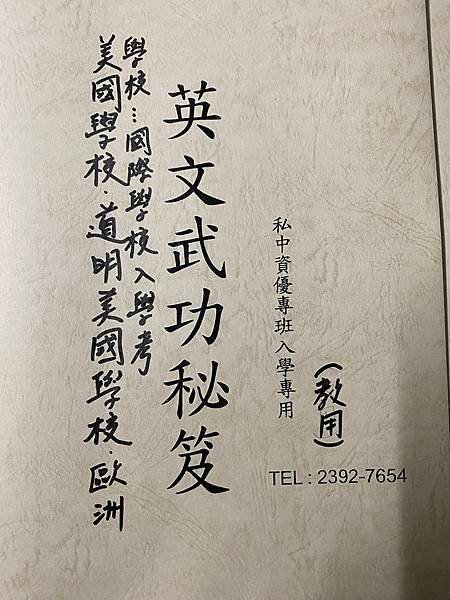 私中資優專班入學專用
(教用)
英文武功秘笈
美國學校．道明美國學校．歐洲
學校…國際學校入學考
TEL : 2392-7654